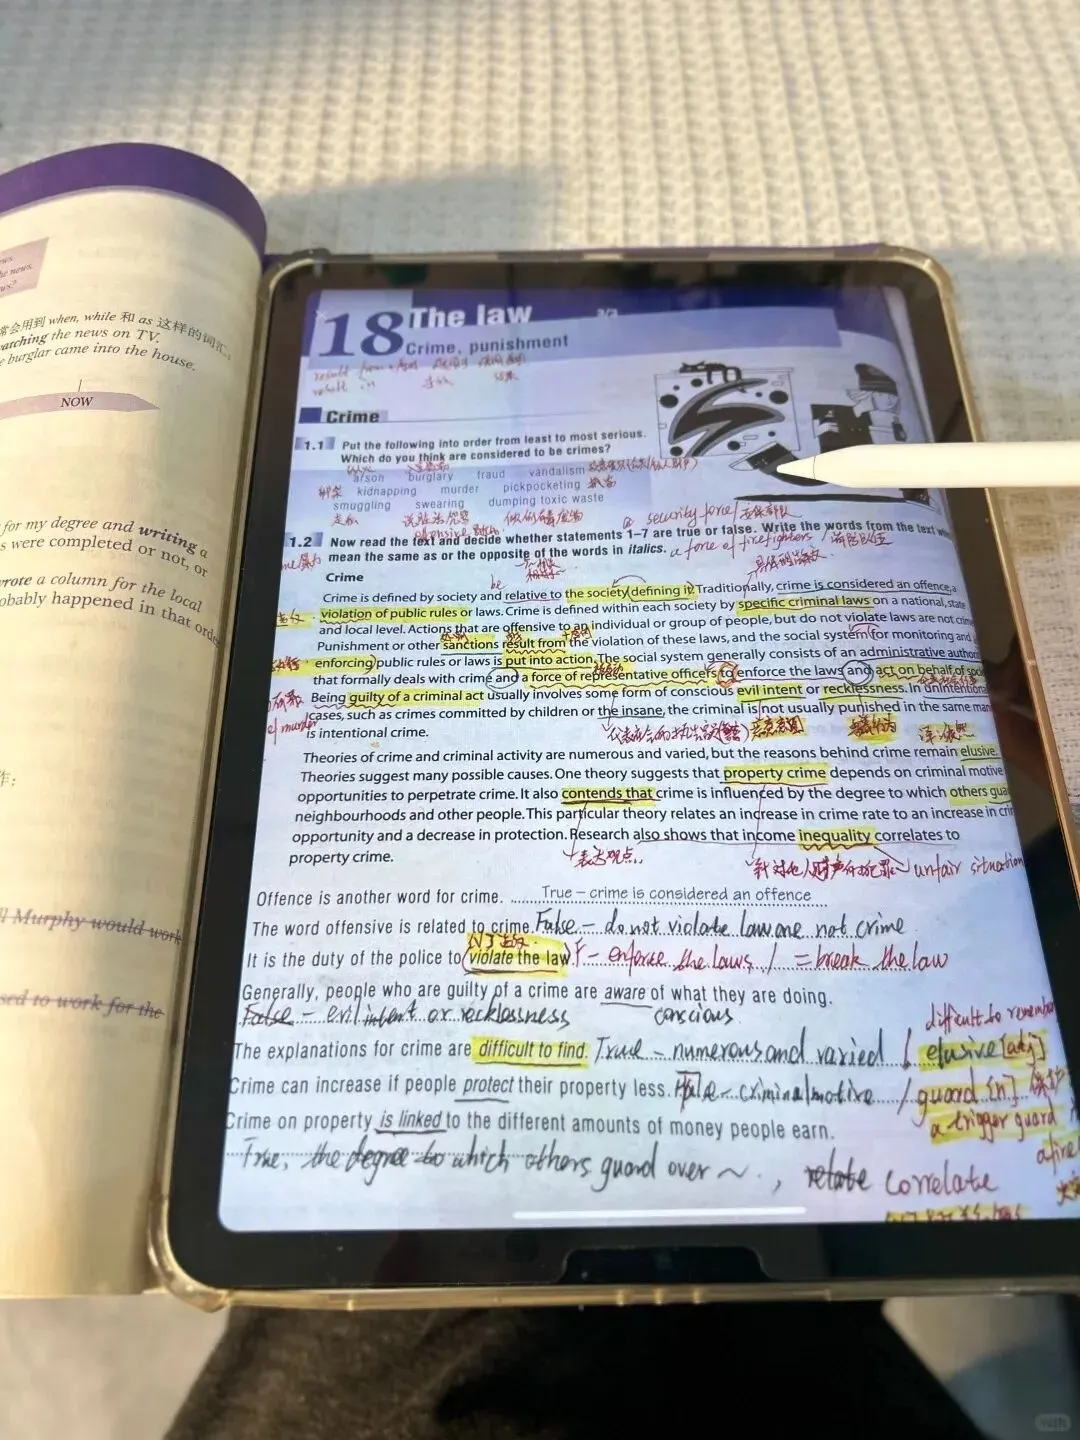 常会用到 when, while 和 as 这样的词汇,
atching the news on TV.
e burglar came into the house.
NOW
for my degree and writing a
s were completed or not, or
rote a column for the local
obably happened in that orde
l Murphy would work
sed to work for the
18 The law
Crime, punishment
result from
result in
Crime
1.1 Put the following into order from least to most serious.
Which do you think are considered to be crimes?
arson burglary fraud vandalism
绑架 kidnapping murder pickpocketing
smuggling swearing dumping toxic waste
走私
a security force/
1.2 Now read the text and decide whether statements 1–7 are true or false. Write the words from the text
mean the same as or the opposite of the words in italics. a force of firefighters / 消防队伍
Crime
be
Crime is defined by society and relative to the society defining it. Traditionally, crime is considered an offence, a
violation of public rules or laws. Crime is defined within each society by specific criminal laws on a national, state
and local level. Actions that are offensive to an individual or group of people, but do not violate laws are not crime
Punishment or other sanctions result from the violation of these laws, and the social system for monitoring and
enforcing public rules or laws is put into action. The social system generally consists of an administrative author
that formally deals with crime and a force of representative officers to enforce the laws and act on behalf of soc
Being guilty of a criminal act usually involves some form of conscious evil intent or recklessness. In unintentiona
cases, such as crimes committed by children or the insane, the criminal is not usually punished in the same man
of murder
is intentional crime.
Theories of crime and criminal activity are numerous and varied, but the reasons behind crime remain elusive.
Theories suggest many possible causes. One theory suggests that property crime depends on criminal motive
opportunities to perpetrate crime. It also contends that crime is influenced by the degree to which others gua
neighbourhoods and other people. This particular theory relates an increase in crime rate to an increase in cri
opportunity and a decrease in protection. Research also shows that income inequality correlates to
property crime.
表达观点
unfair situation
Offence is another word for crime. True – crime is considered an offence
The word offensive is related to crime. False – do not violate law are not crime
It is the duty of the police to violate the law. F – enforce the laws / = break the law
Generally, people who are guilty of a crime are aware of what they are doing.
False – evil intent or recklessness conscious
difficult to remember
The explanations for crime are difficult to find. True – numerous and varied / elusive [adj]
Crime can increase if people protect their property less. False – criminal motive / guard [n] 保护
a trigger guard
Crime on property is linked to the different amounts of money people earn.
True, the degree to which others guard over ~ , relate correlate